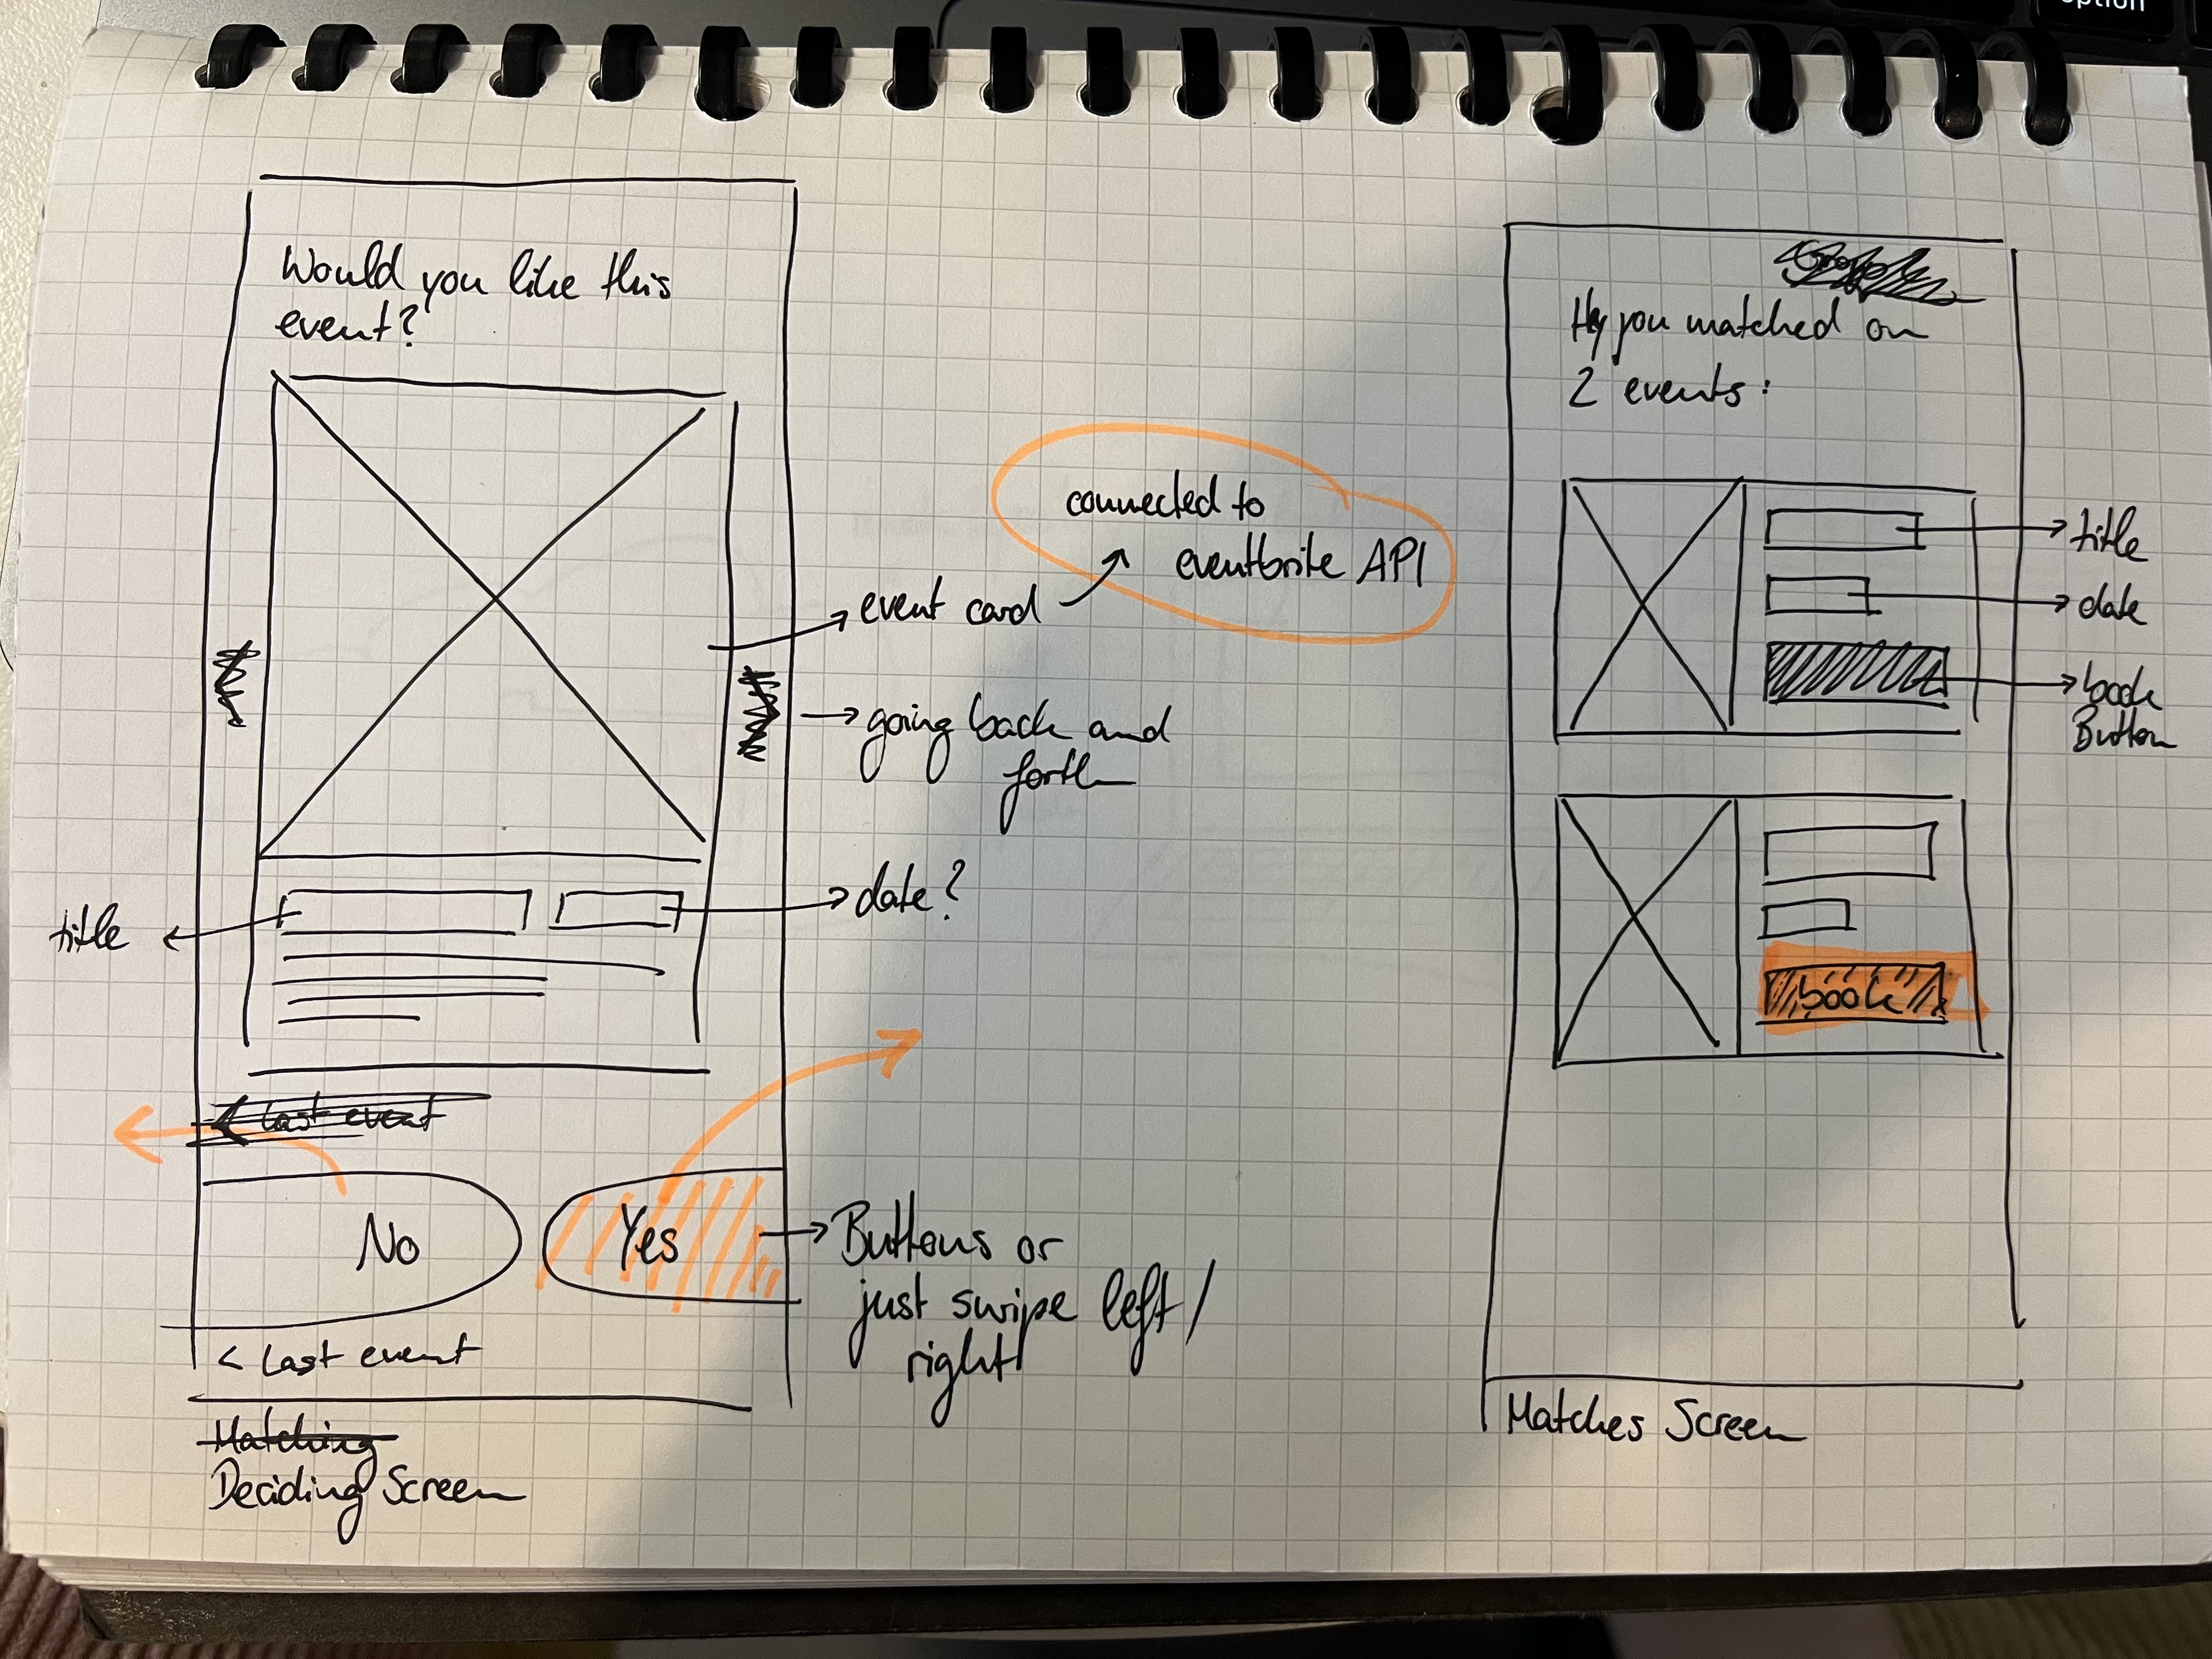 option
Would you like this
event?
connected to
eventbrite API
event card
going back and
forth
title
date?
Last event
No
Yes
Buttons or
just swipe left/
right
< Last event
Matching
Deciding Screen
Hey you matched on
2 events:
title
date
book
Button
book
Matches Screen